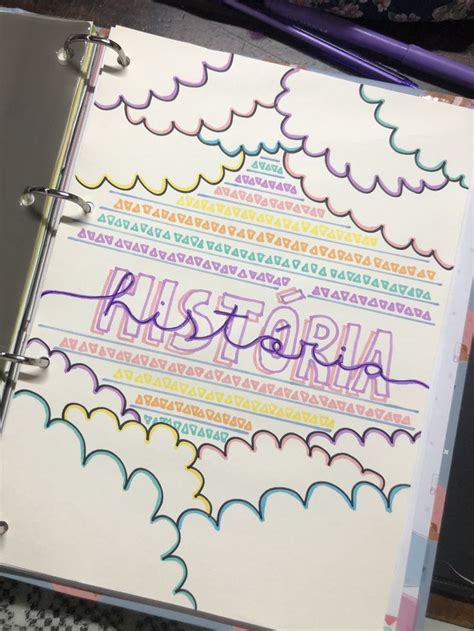 HISTÓRIA
história